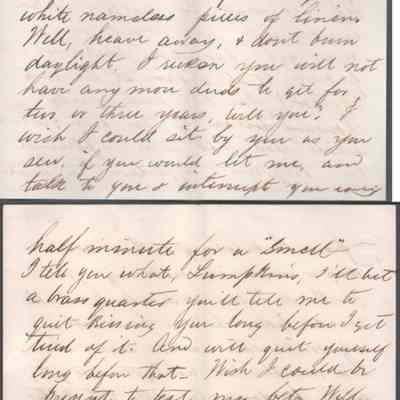 white nameless pieces of linen.
Well, heave away, & dont burn
daylight. I reckon you will not
have any more duds to get for
two or three years, will you? I
wish I could sit by you as you
sew, if you would let me, and
talk to you & interrupt you every
half minute for a "smell"
I tell you what, Lumpkins, I'll bet
a brass quarter you'll tell me to
quit kissing you long before I get
tired of it. And will quit yourself
long before that_ Wish I could be
present to